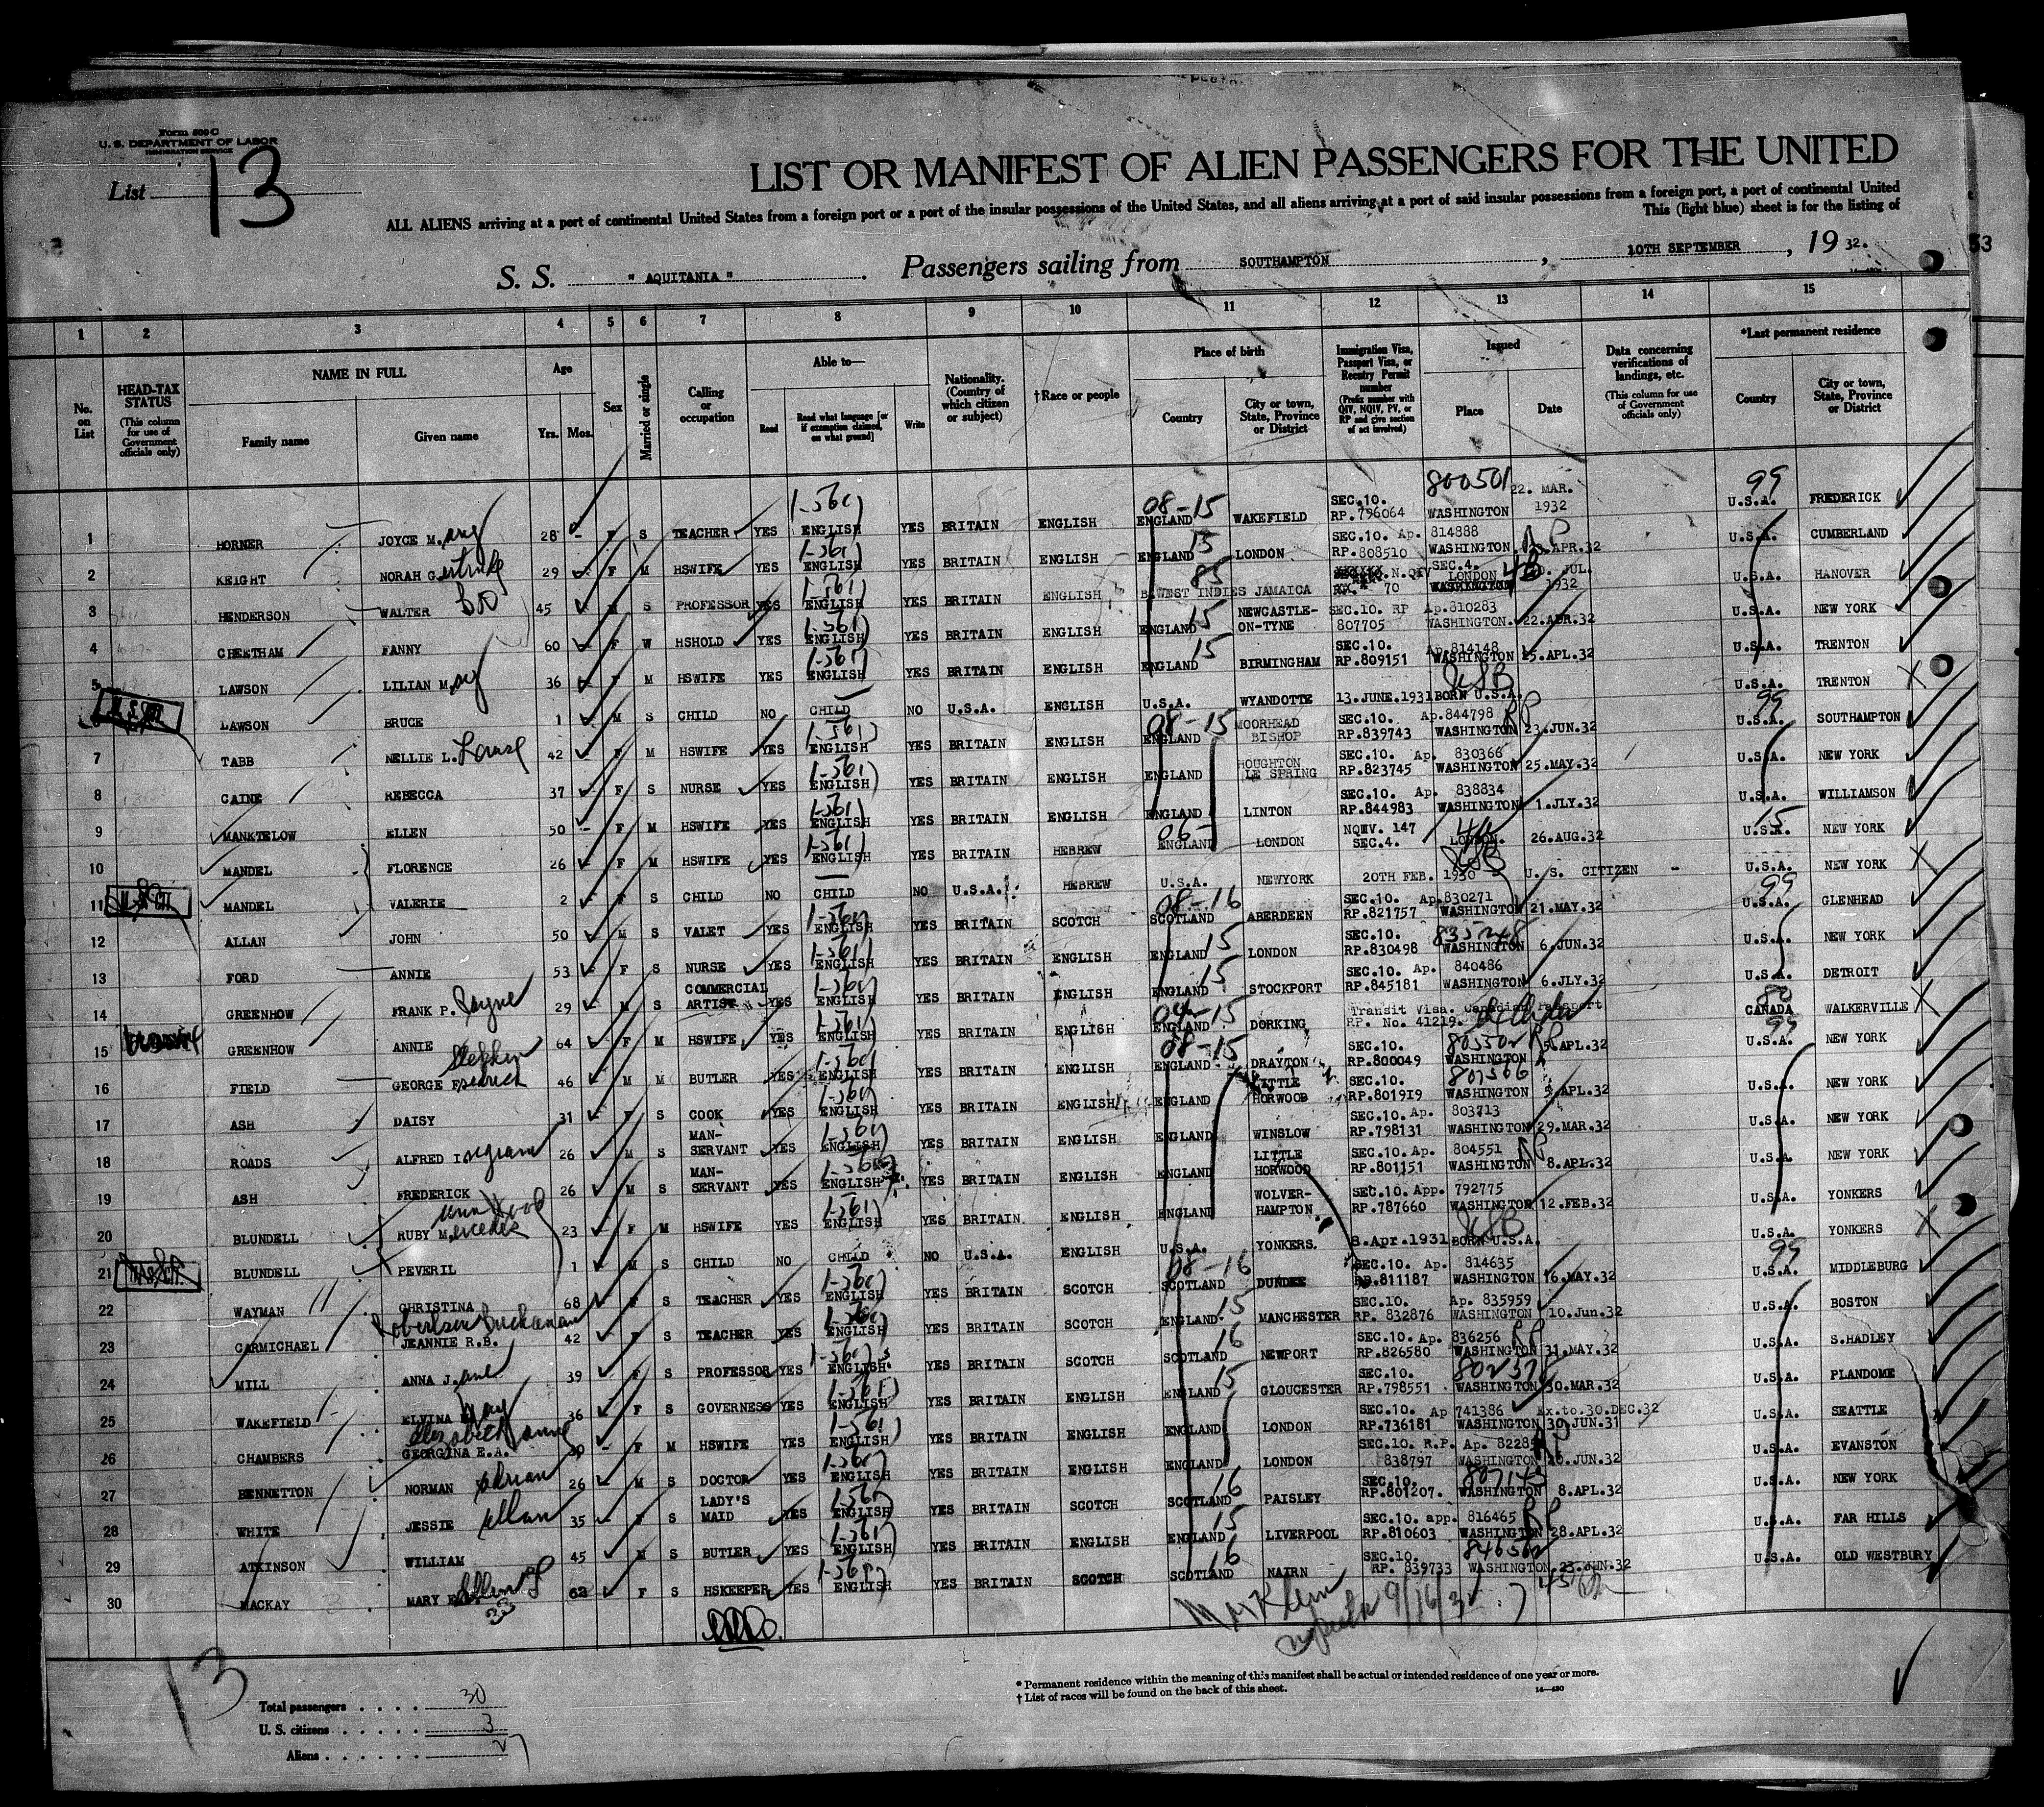 Form 500 C
U. S. DEPARTMENT OF LABOR
IMMIGRATION SERVICE
List 13
LIST OR MANIFEST OF ALIEN PASSENGERS FOR THE UNITED
ALL ALIENS arriving at a port of continental United States from a foreign port or a port of the insular possessions of the United States, and all aliens arriving at a port of said insular possessions from a foreign port, a port of continental United
This (light blue) sheet is for the listing of
S. S. " AQUITANIA " . Passengers sailing from SOUTHAMPTON , 10TH SEPTEMBER , 19 32.
53
1 2 3 4 5 6 7 8 9 10 11 12 13 14 15
No. on List
HEAD-TAX STATUS (This column for use of Government officials only)
NAME IN FULL
Family name Given name
Age
Yrs. Mos.
Sex
Married or single
Calling or occupation
Able to—
Read Read what language [or if exemption claimed, on what ground] Write
Nationality. (Country of which citizen or subject)
†Race or people
Place of birth
Country City or town, State, Province or District
Immigration Visa, Passport Visa, or Reentry Permit number (Prefix number with QIV, NQIV, PV, or RP and give section of act involved)
Issued
Place Date
Data concerning verifications of landings, etc. (This column for use of Government officials only)
*Last permanent residence
Country City or town, State, Province or District
1 HORNER JOYCE M.ary 28 F S TEACHER YES ENGLISH YES BRITAIN ENGLISH 08-15 ENGLAND WAKEFIELD SEC.10. RP.796064 800501 WASHINGTON 22. MAR. 1932 99 U.S.A. FREDERICK
2 KEIGHT NORAH Gertrude 29 F M HSWIFE YES ENGLISH YES BRITAIN ENGLISH 15 ENGLAND LONDON SEC.10. Ap. 814888 RP.808510 WASHINGTON APR.32 U.S.A. CUMBERLAND
3 HENDERSON WALTER 45 M S PROFESSOR YES ENGLISH YES BRITAIN ENGLISH 85 B.WEST INDIES JAMAICA N.QIV SEC.4. 70 LONDON JUL. 1932 U.S.A. HANOVER
4 CHEETHAM FANNY 60 F W HSHOLD YES ENGLISH YES BRITAIN ENGLISH 15 ENGLAND NEWCASTLE-ON-TYNE SEC.10. RP Ap.810283 807705 WASHINGTON. 22.APR.32 U.S.A. NEW YORK
5 LAWSON LILIAN M.ay 36 F M HSWIFE YES ENGLISH YES BRITAIN ENGLISH 15 ENGLAND BIRMINGHAM SEC.10. Ap.814148 RP.809151 WASHINGTON 25.APL.32 U.S.A. TRENTON
6 LAWSON BRUCE 1 M S CHILD NO CHILD NO U.S.A. ENGLISH U.S.A. WYANDOTTE 13.JUNE.1931 BORN U.S.A. U.S.A. TRENTON
7 TABB NELLIE L.Louise 42 F M HSWIFE YES ENGLISH YES BRITAIN ENGLISH 08-15 ENGLAND MOORHEAD BISHOP SEC.10. Ap.844798 RP.839743 WASHINGTON 23.JUN.32 99 U.S.A. SOUTHAMPTON
8 CAINE REBECCA 37 F S NURSE YES ENGLISH YES BRITAIN ENGLISH ENGLAND HOUGHTON LE SPRING SEC.10. Ap. 830366 RP.823745 WASHINGTON 25.MAY.32 U.S.A. NEW YORK
9 MANKTELOW ELLEN 50 F M HSWIFE YES ENGLISH YES BRITAIN ENGLISH ENGLAND LINTON SEC.10. Ap. 838834 RP.844983 WASHINGTON 1.JLY.32 U.S.A. WILLIAMSON
10 MANDEL FLORENCE 26 F M HSWIFE YES ENGLISH YES BRITAIN HEBREW 06- ENGLAND LONDON NQWV. 147 SEC.4. LONDON. 26.AUG.32 15 U.S.A. NEW YORK
11 MANDEL VALERIE 2 F S CHILD NO CHILD NO U.S.A. HEBREW U.S.A. NEWYORK 20TH FEB. 1930 U.S. CITIZEN - U.S.A. NEW YORK
12 ALLAN JOHN 50 M S VALET YES ENGLISH YES BRITAIN SCOTCH 08-16 SCOTLAND ABERDEEN SEC.10. Ap.830271 RP.821757 WASHINGTON 21.MAY.32 99 U.S.A. GLENHEAD
13 FORD ANNIE 53 F S NURSE YES ENGLISH YES BRITAIN ENGLISH 15 ENGLAND LONDON SEC.10. RP.830498 WASHINGTON 6.JUN.32 U.S.A. NEW YORK
14 GREENHOW FRANK P. Payne 29 M S COMMERCIAL ARTIST YES ENGLISH YES BRITAIN ENGLISH 15 ENGLAND STOCKPORT SEC.10. Ap. 840486 RP.845181 WASHINGTON 6.JLY.32 U.S.A. DETROIT
15 GREENHOW ANNIE 64 F M HSWIFE YES ENGLISH YES BRITAIN ENGLISH 04-15 ENGLAND DORKING Transit Visa. Canadian Passport RP. No. 41219. 80 CANADA WALKERVILLE
16 FIELD GEORGE Frederick Stephen 46 M M BUTLER YES ENGLISH YES BRITAIN ENGLISH 08-15 ENGLAND DRAYTON SEC.10. RP.800049 WASHINGTON 5.APL.32 99 U.S.A. NEW YORK
17 ASH DAISY 31 F S COOK YES ENGLISH YES BRITAIN ENGLISH ENGLAND LITTLE HORWOOD SEC.10. RP.801919 807566 WASHINGTON APL.32 U.S.A. NEW YORK
18 ROADS ALFRED Ingram 26 M S MAN-SERVANT YES ENGLISH YES BRITAIN ENGLISH ENGLAND WINSLOW SEC.10. Ap. 803713 RP.798131 WASHINGTON 29.MAR.32 U.S.A. NEW YORK
19 ASH FREDERICK 26 M S MAN-SERVANT YES ENGLISH YES BRITAIN ENGLISH ENGLAND LITTLE HORWOOD SEC.10. Ap. 804551 RP.801151 WASHINGTON 8.APL.32 U.S.A. NEW YORK
20 BLUNDELL RUBY Mercedes 23 F M HSWIFE YES ENGLISH YES BRITAIN. ENGLISH ENGLAND WOLVER-HAMPTON SEC.10. App. 792775 RP.787660 WASHINGTON 12.FEB.32 U.S.A. YONKERS
21 BLUNDELL PEVERIL 1 M S CHILD NO CHILD NO U.S.A. ENGLISH U.S.A. YONKERS. 8.Apr.1931 BORN U.S.A. U.S.A. YONKERS
22 WAYMAN CHRISTINA 68 F S TEACHER YES ENGLISH YES BRITAIN SCOTCH 08-16 SCOTLAND DUNDEE SEC.10. Ap. 814635 RP.811187 WASHINGTON 16.MAY.32 99 U.S.A. MIDDLEBURG
23 CARMICHAEL Robertson Buchanan JEANNIE R.B. 42 F S TEACHER YES ENGLISH YES BRITAIN SCOTCH 15 ENGLAND. MANCHESTER SEC.10. Ap. 835959 RP. 832876 WASHINGTON 10.Jun.32 U.S.A. BOSTON
24 MILL ANNA J.ane 39 F S PROFESSOR YES ENGLISH YES BRITAIN SCOTCH 16 SCOTLAND NEWPORT SEC.10. Ap. 836256 RP.826580 WASHINGTON 31.MAY.32 U.S.A. S.HADLEY
25 WAKEFIELD ELVINA May 36 F S GOVERNESS YES ENGLISH YES BRITAIN ENGLISH 15 ENGLAND GLOUCESTER SEC.10. RP.798551 WASHINGTON 30.MAR.32 U.S.A. PLANDOME
26 CHAMBERS Elizabeth Anne GEORGINA E.A. 30 F M HSWIFE YES ENGLISH YES BRITAIN ENGLISH ENGLAND LONDON SEC.10. Ap 741386 Ex.to.30.DEC.32 RP.736181 WASHINGTON 30.JUN.31 U.S.A. SEATTLE
27 BENNETTON NORMAN Adrian 26 M S DOCTOR YES ENGLISH YES BRITAIN ENGLISH ENGLAND LONDON SEC.10. R.P. Ap. 838797 WASHINGTON JUN.32 U.S.A. EVANSTON
28 WHITE JESSIE Allan 35 F S LADY'S MAID YES ENGLISH YES BRITAIN SCOTCH 16 SCOTLAND PAISLEY SEC.10. RP.801207. WASHINGTON 8.APL.32 U.S.A. NEW YORK
29 ATKINSON WILLIAM 45 M S BUTLER YES ENGLISH YES BRITAIN ENGLISH 15 ENGLAND LIVERPOOL SEC.10. app. 816465 RP.810603 WASHINGTON 28.APL.32 U.S.A. FAR HILLS
30 MACKAY MARY Ellen 62 F S HSKEEPER YES ENGLISH YES BRITAIN SCOTCH 16 SCOTLAND NAIRN SEC.10. RP. 839733 WASHINGTON 23.JUN.32 U.S.A. OLD WESTBURY
33
9/16/32
13
Total passengers . . . . 30
U. S. citizens . . . . . 3
Aliens . . . . . . 27
* Permanent residence within the meaning of this manifest shall be actual or intended residence of one year or more.
† List of races will be found on the back of this sheet.
14—430